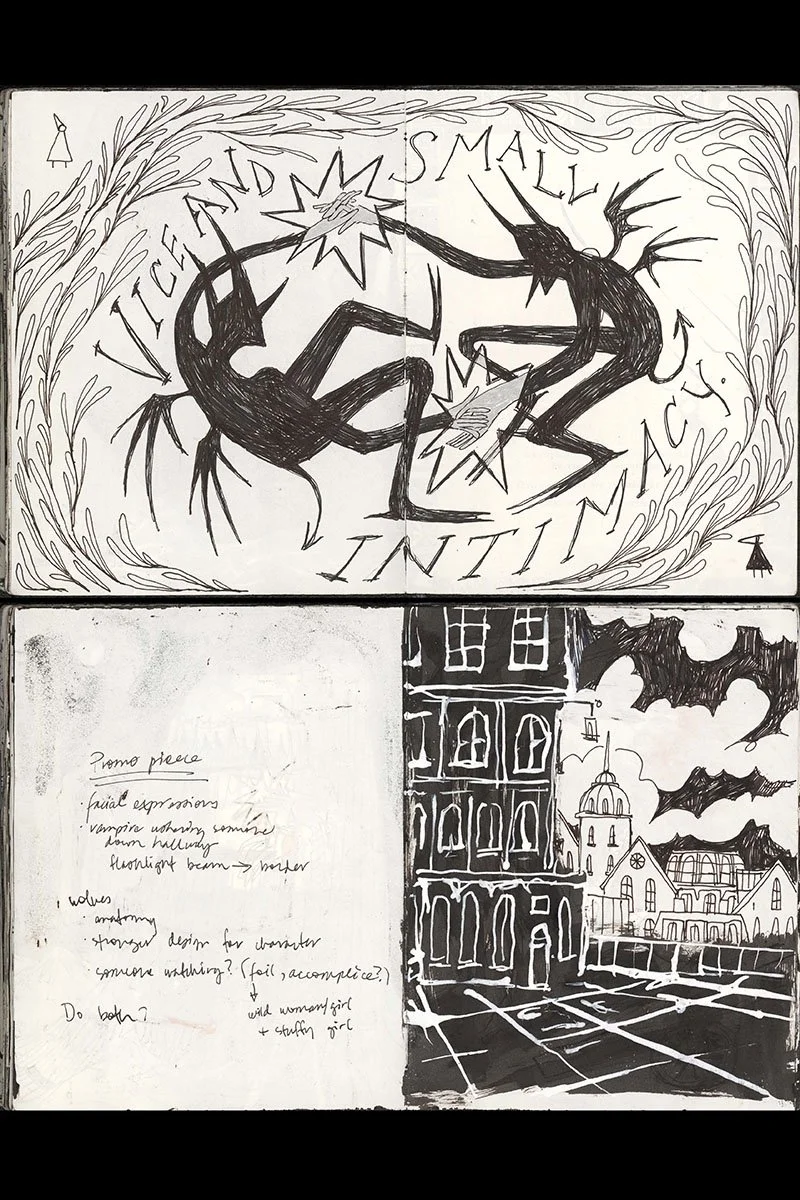 VICE AND SMALL
INTIMACY.
Promo piece
· facial expressions
· vampire ushering someone
down hallway
flashlight beam → border
wolves
· anatomy
· stronger design for character
· someone watching? (foil, accomplice?)
↓
wild woman/girl
+ stuffy girl
Do both?